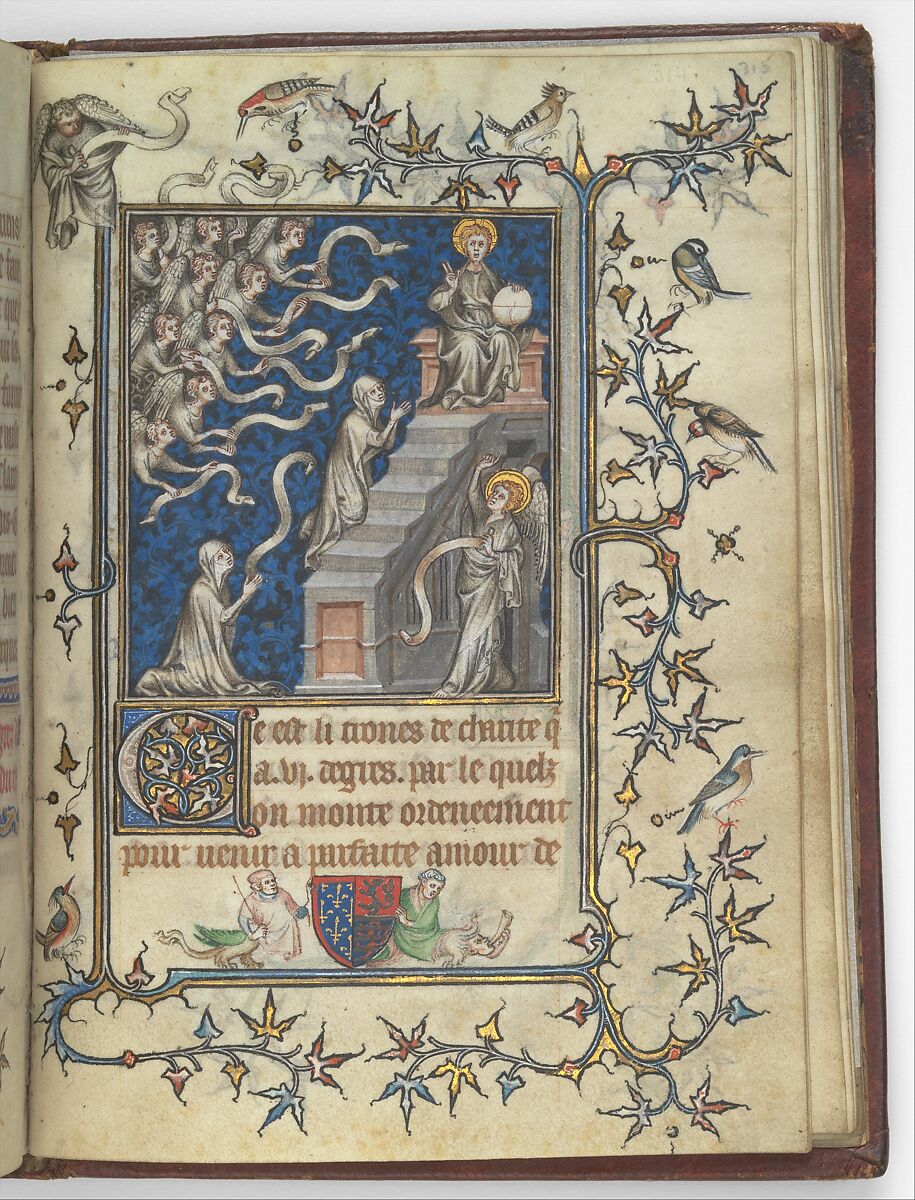 315
Ce est li trones de charite q̄
a .vj. degres. par le quelz
on monte ordeneement
pour uenir a parfaite amour de